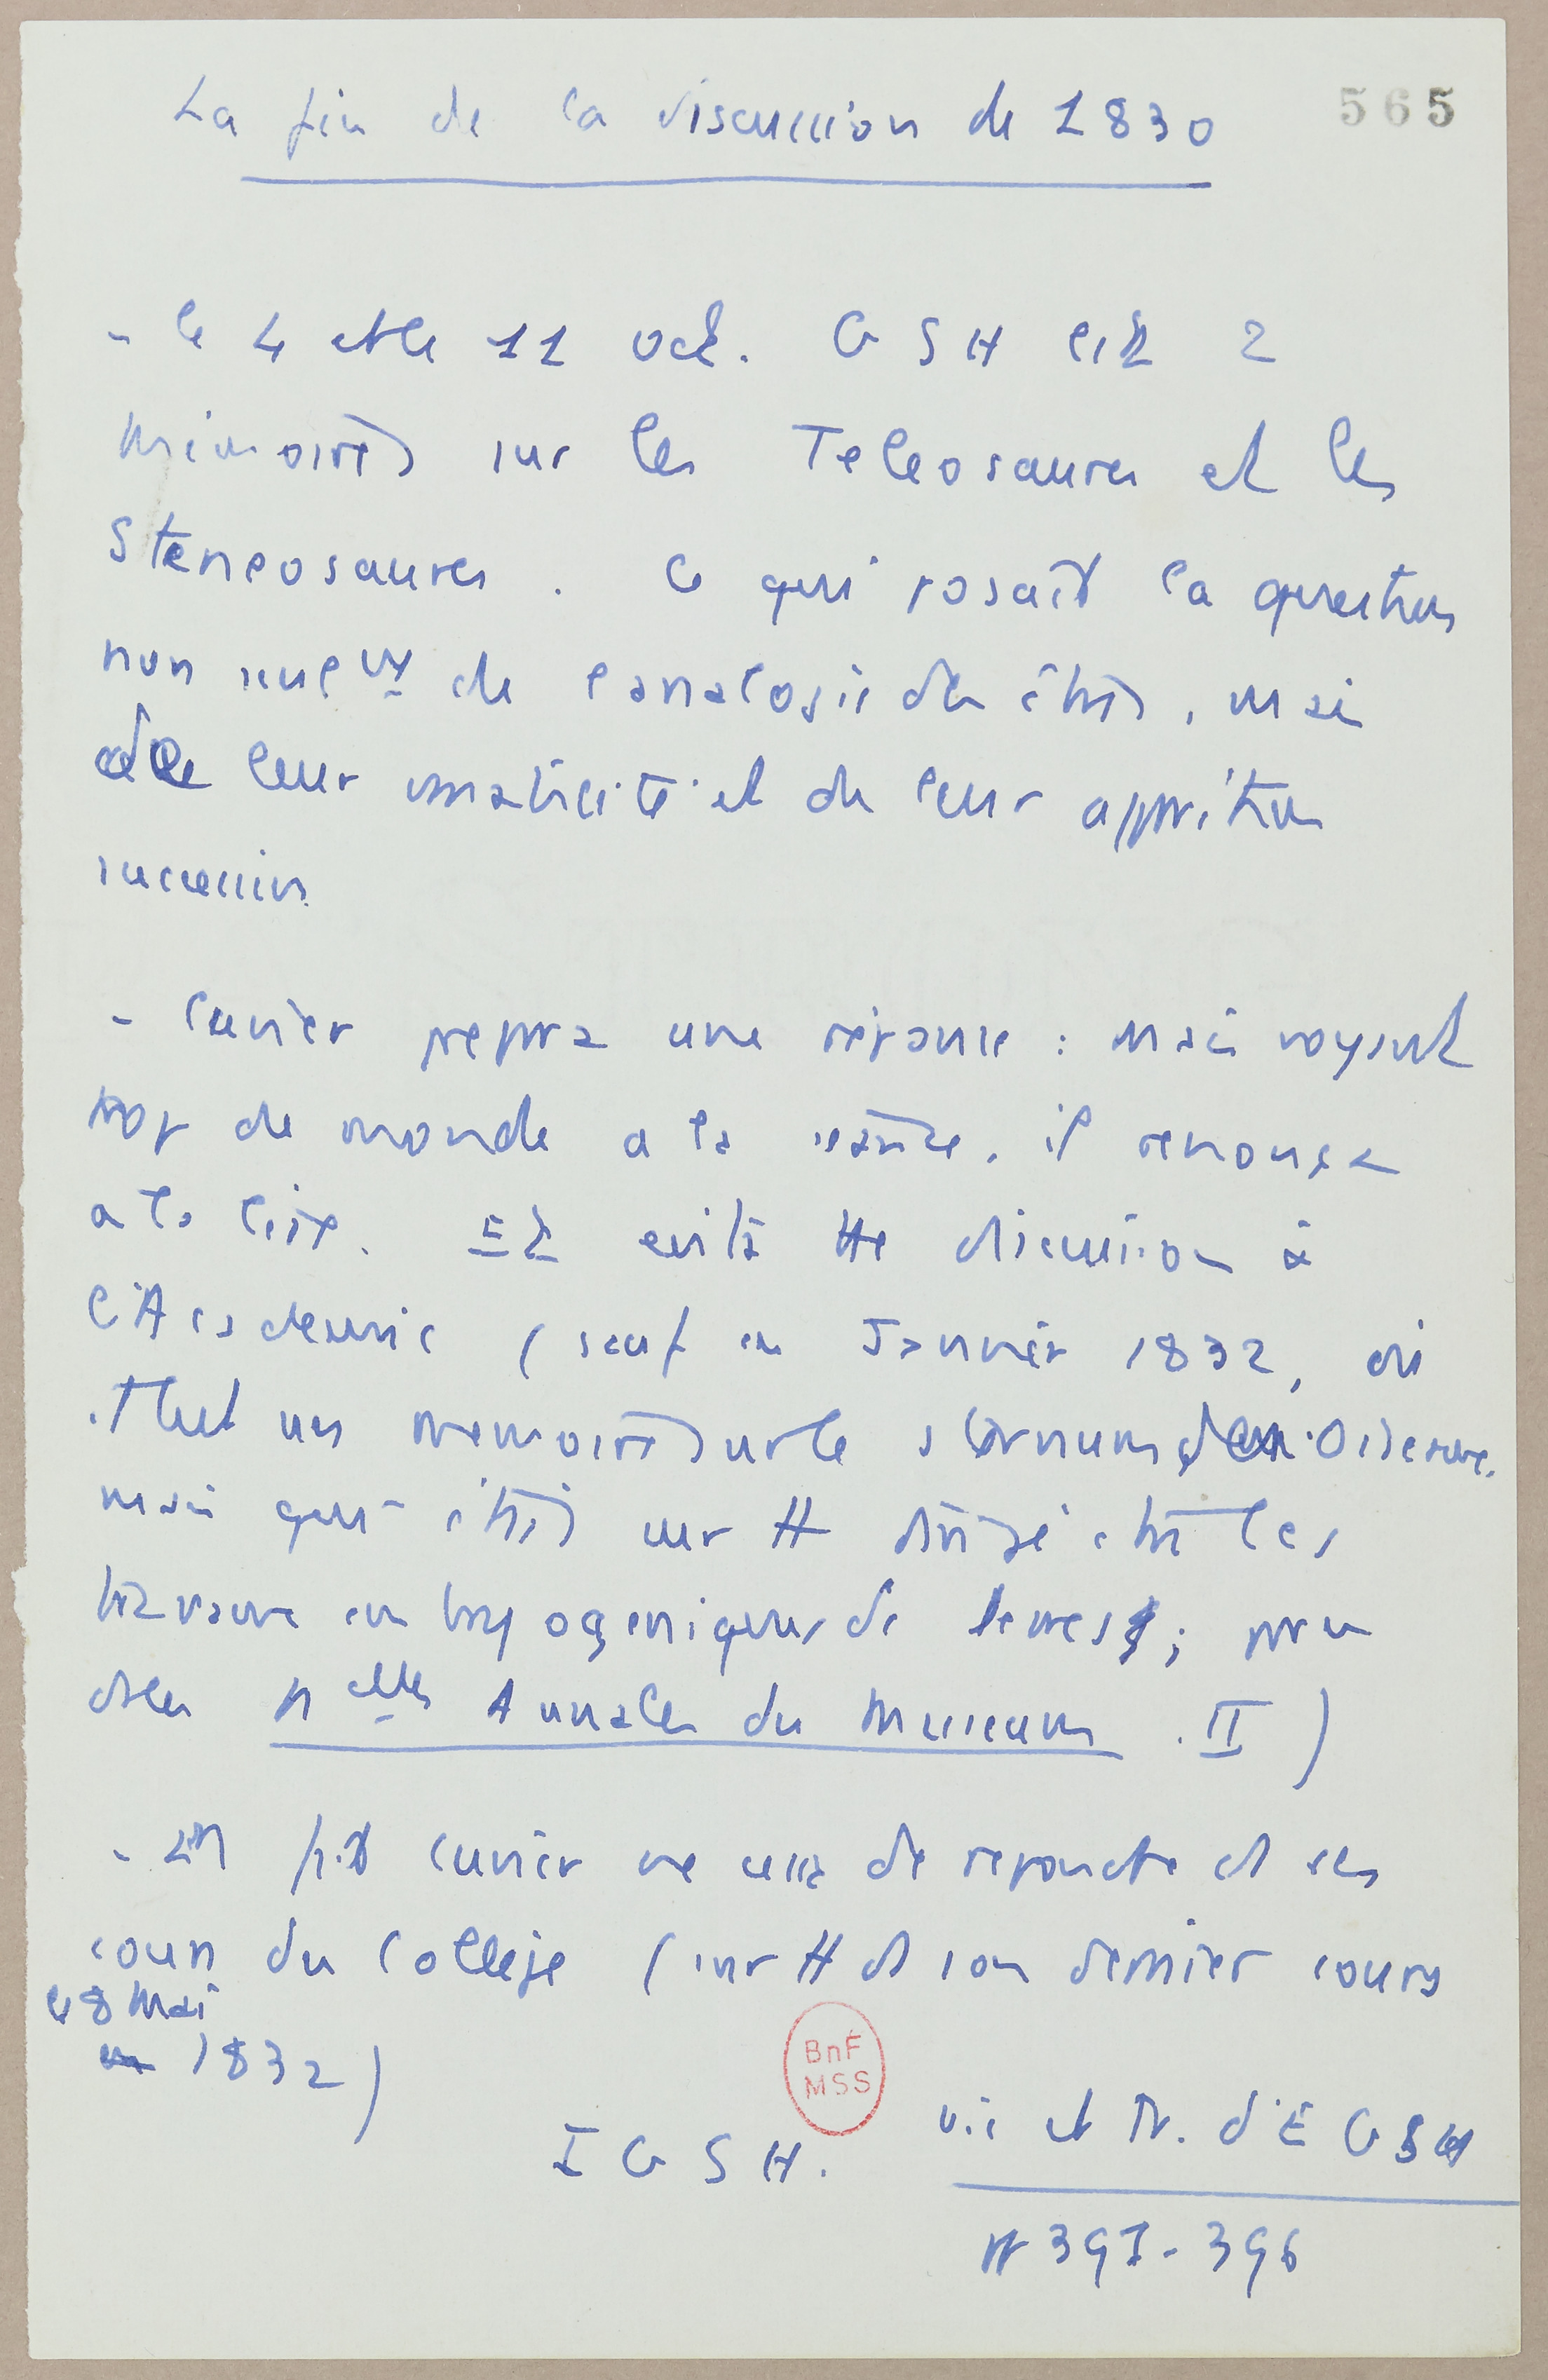 La fin de la discussion de 1830
565
- le 4 et le 11 oct. GSH lit 2
memoires sur les Teleosaures et les
Steneosaures. Ce qui posait la question
non seulnt de l'analogie des êtres, mais
de leur variabilité et de leur apparition
successive.
- Cuvier prepara une reponse : mais voyant
trop de monde a la seance, il renonça
a la lire. Et evita tte discussion à
l'Academie (sauf en Janvier 1832, où
il lut un memoire sur le sternum des oiseaux,
mais qui était sur tt dirigé contre les
travaux embryogeniques de Serres ; paru
ds les nelles Annales du Museum. II)
- En fait Cuvier ne cessa de repondre ds ses
cours du College (sur tt ds son dernier cours
le 8 Mai
1832)
I G S H. Vie et Tr. d'E G S H
pp 391-396
BnF
MSS